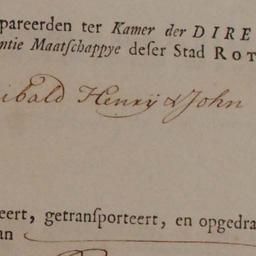 pareerden ter Kamer der DIRE
ntie Maatſchappye deſer Stad ROT
ibald Henrÿ & John
eert, getranſporteert, en opgedra
an